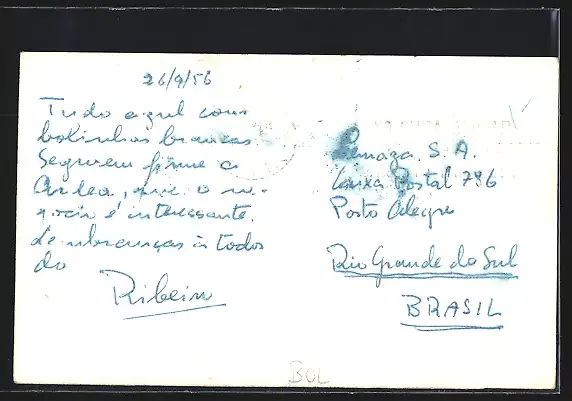 26/9/56
Tudo azul com
bolinhas brancas
Segurem firme a
que o ne-
gocio é interessante.
Lembranças à todos
do
Ribeiro
S. A.
Caixa Postal 796
Porto Alegre
Rio Grande do Sul
BRASIL
BOL